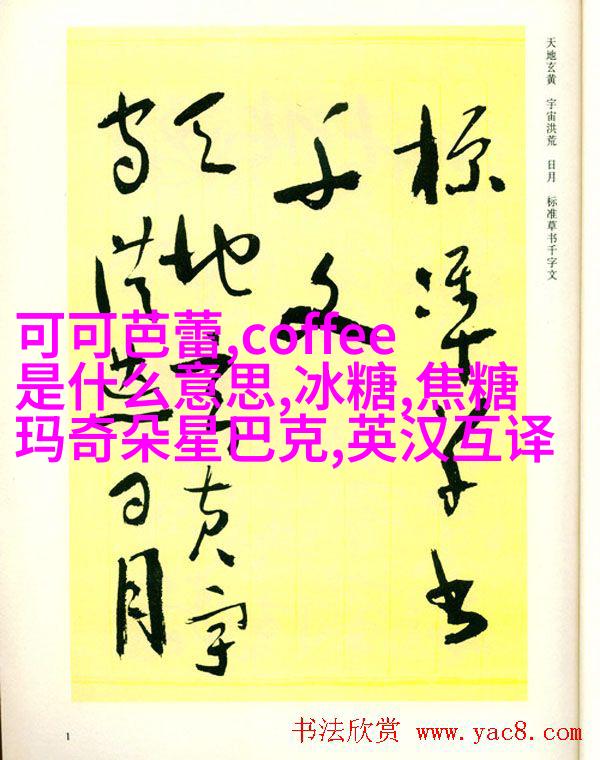 天地玄黄 宇宙洪荒 日月 标准草书千字文
标准草书
千文
天地玄黄宇
宙洪荒日月
可可芭蕾,coffee
是什么意思,冰糖,焦糖
玛奇朵星巴克,英汉互译
1
书法欣赏 www.yac8.com